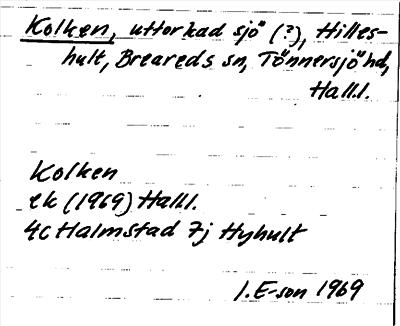 Kolken, uttorkad sjö (?), Hilles-
hult, Breareds sn, Tönnersjö hd,
Hall.
Kolken
ek (1969) Hall.
4C Halmstad 7j Hyhult
I. E-son 1969